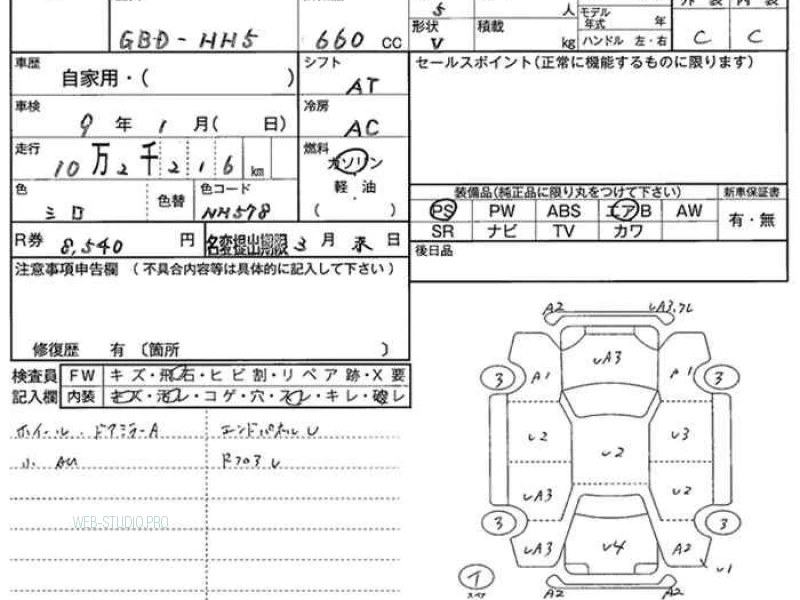 5 人 モデル年式 年 外装 内装
GBD-HH5 660 cc 形状 V 積載 kg ハンドル 左・右 C C
車歴 自家用・( ) シフト AT セールスポイント(正常に機能するものに限ります)
車検 9 年 1 月( 日) 冷房 AC
走行 10万2千216 km 燃料 ガソリン
軽油
( )
色 シロ 色替 色コード NH578
装備品(純正品に限り丸をつけて下さい) 新車保証書
PS PW ABS エアB AW 有・無
SR ナビ TV カワ
R券 8,540 円 名変提出期限 3 月 末 日
後日品
注意事項申告欄 (不具合内容等は具体的に記入して下さい)
修復歴 有 〔箇所 〕
検査員 FW キズ・飛石・ヒビ割・リペア跡・X要
記入欄 内装 キズ・汚レ・コゲ・穴・スレ・キレ・破レ
ホイール・ドアミラーA エンドパネルU
小 AU
WEB-STUDIO.PRO
A2 UA3.7L
UA3
3 A1 A1 3
U2 U3
U2
UA3 U2
3 3
UA3 U4 A2
U1
イ
スペア
A2 A2